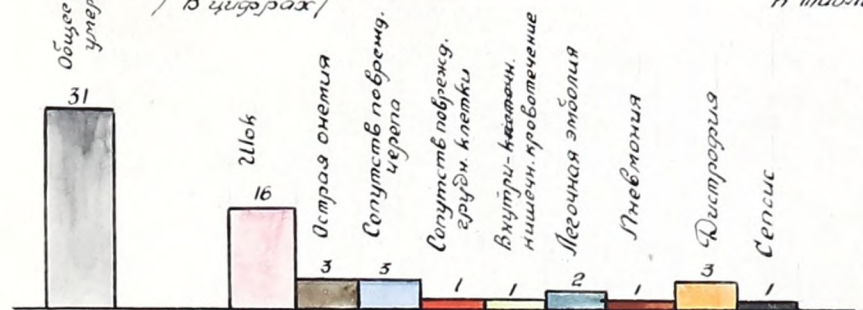 / в цифрах/
Общее
умер
31
Шок
16
Острая онемия
3
Сопутств поврежд.
черепа
3
Сопутств поврежд.
грудн. клетки
1
Внутри-
кишечн. кровотечение
1
Легочная эмболия
2
Пневмония
1
Дистрофия
3
Сепсис
1